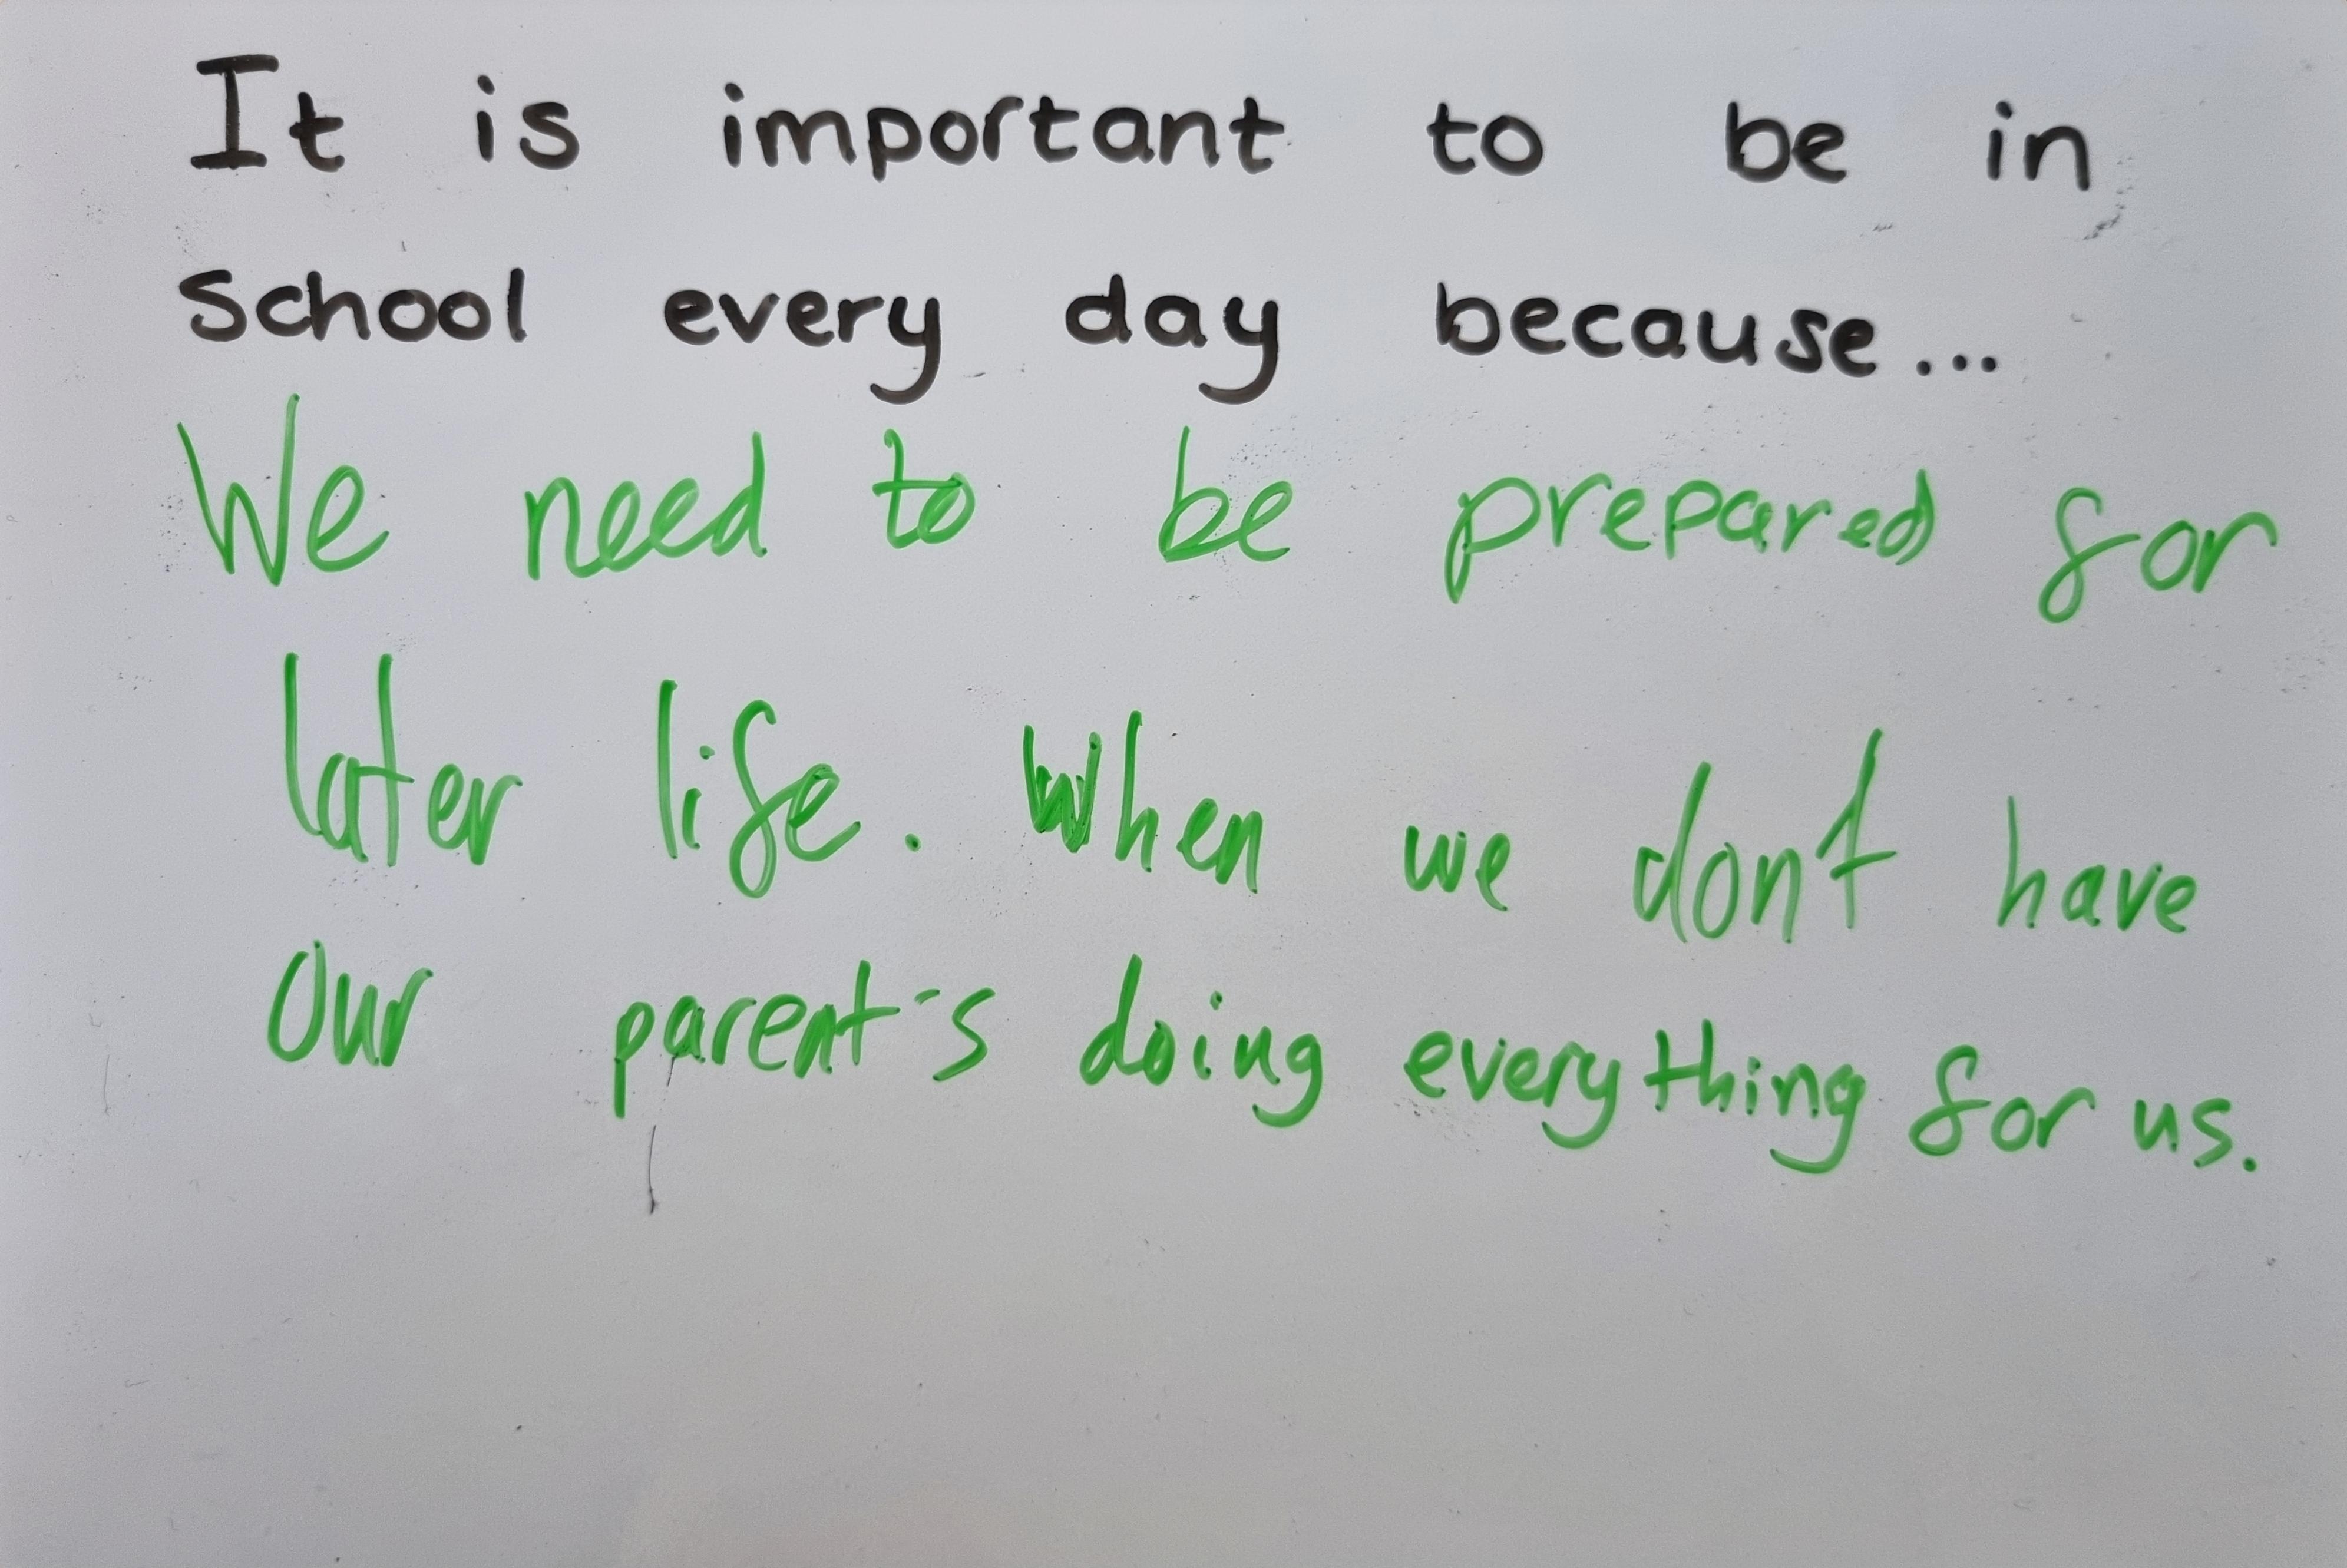 It is important to be in
school every day because...
We need to be prepared for
later life. When we dont have
Our parent's doing everything for us.